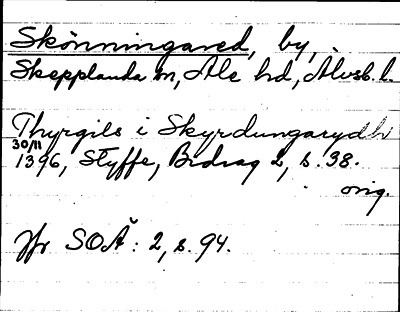 Skönningared, by,
Skepplanda sn, Ale hd, Älvsb. l.
Thyrgils i Skyrdungarydhi
30/11
1396, Styffe, Bidrag 2, s. 38.
orig.
Jfr SOÄ: 2, s. 94.